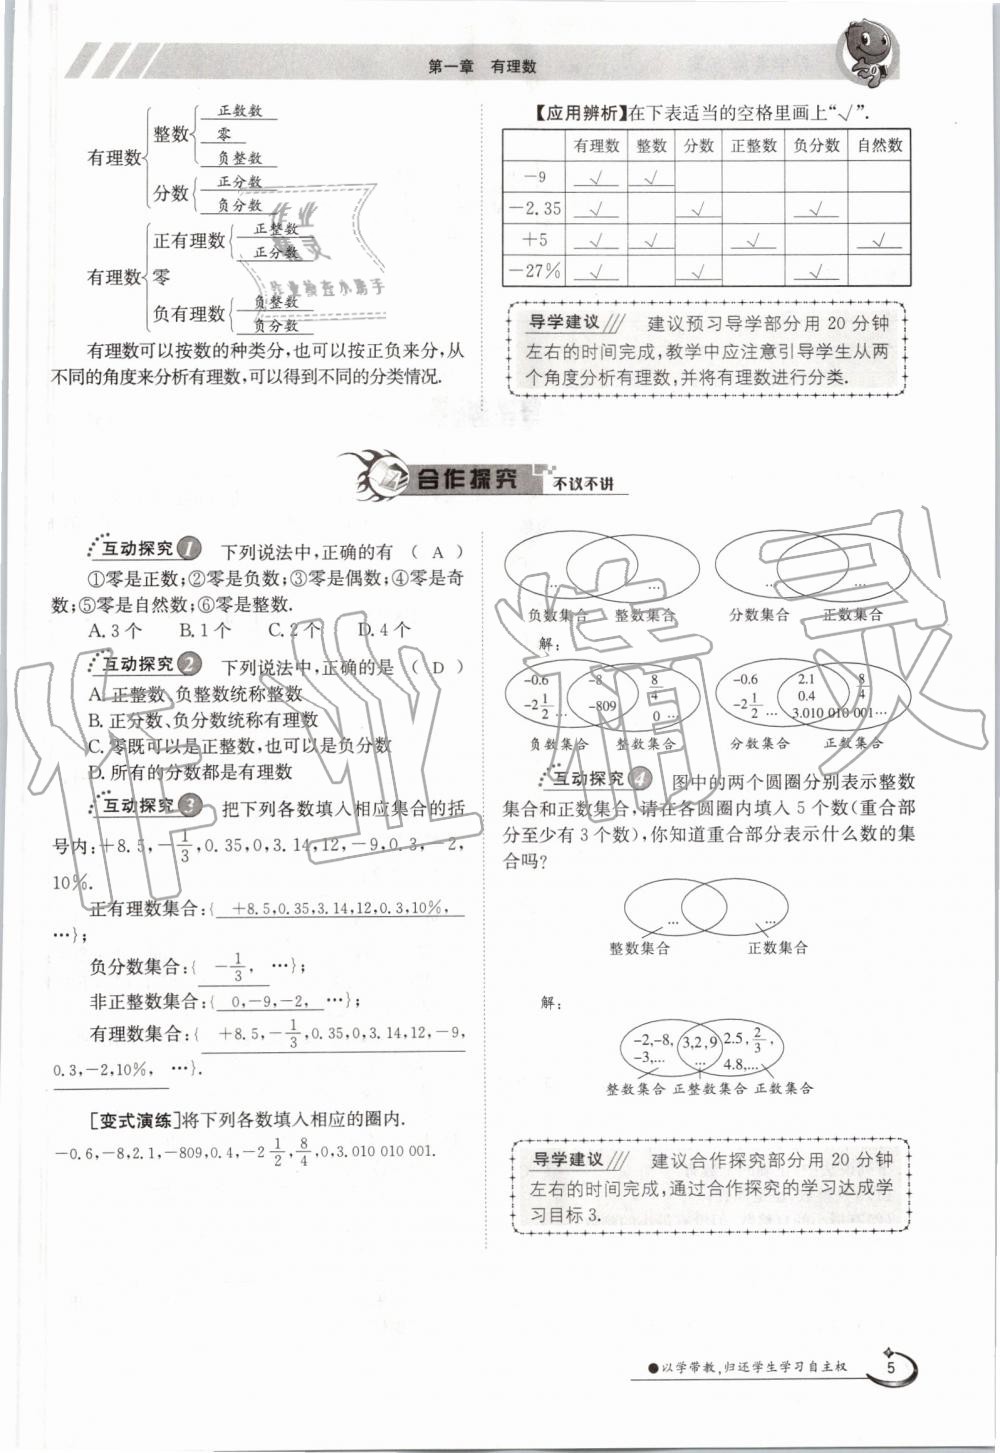 第一章 有理数
有理数
整数
正数数
零
负整数
分数
正分数
负分数
有理数
正有理数
正整数
正分数
零
负有理数
负整数
负分数
有理数可以按数的种类分,也可以按正负来分,从
不同的角度来分析有理数,可以得到不同的分类情况.
【应用辨析】在下表适当的空格里画上“√”.
有理数 整数 分数 正整数 负分数 自然数
-9 √ √
-2.35 √ √ √
+5 √ √ √ √
-27% √ √ √
导学建议 建议预习导学部分用 20 分钟
左右的时间完成,教学中应注意引导学生从两
个角度分析有理数,并将有理数进行分类.
合作探究 不议不讲
互动探究 1 下列说法中,正确的有 ( A )
①零是正数;②零是负数;③零是偶数;④零是奇
数;⑤零是自然数;⑥零是整数.
A. 3 个 B. 1 个 C. 2 个 D. 4 个
互动探究 2 下列说法中,正确的是 ( D )
A. 正整数、负整数统称整数
B. 正分数、负分数统称有理数
C. 零既可以是正整数,也可以是负分数
D. 所有的分数都是有理数
互动探究 3 把下列各数填入相应集合的括
号内:+8.5,-1/3,0.35,0,3.14,12,-9,0.3,-2,
10%.
正有理数集合:{ +8.5,0.35,3.14,12,0.3,10%,
…};
负分数集合:{ -1/3, …};
非正整数集合:{ 0,-9,-2, …};
有理数集合:{ +8.5,-1/3,0.35,0,3.14,12,-9,
0.3,-2,10%, …}.
[变式演练]将下列各数填入相应的圈内.
-0.6,-8,2.1,-809,0.4,-2 1/2,8/4,0,3.010 010 001.
… … … …
负数集合 整数集合 分数集合 正数集合
解:
-0.6 -8 8/4 -0.6 2.1 8/4
-2 1/2 … -809 0 … -2 1/2 … 0.4 3.010 010 001…
负数集合 整数集合 分数集合 正数集合
互动探究 4 图中的两个圆圈分别表示整数
集合和正数集合,请在各圆圈内填入 5 个数(重合部
分至少有 3 个数),你知道重合部分表示什么数的集
合吗?
… …
整数集合 正数集合
解:
-2,-8, 3,2,9 2.5,2/3,
-3,… … 4.8,…
整数集合 正整数集合 正数集合
导学建议 建议合作探究部分用 20 分钟
左右的时间完成,通过合作探究的学习达成学
习目标 3.
●以学带教,归还学生学习自主权 5
作业精灵
作业
精灵
作业检查小助手